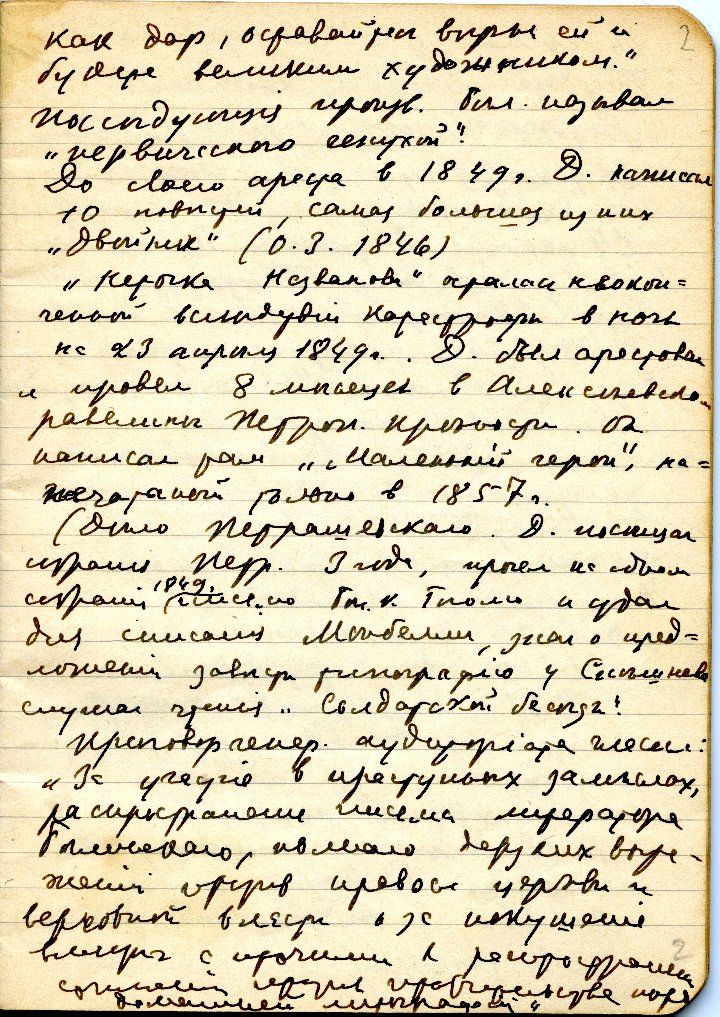 2
как дар, оставайтесь верны ей и
будете великим художником."
Последующия произв. Бѣл. называл
„нервической чепухой".
До своего ареста в 1849г. Д. написал
10 повѣстей, самая большая из них
„Двойник" (О.З. 1846)
„Неточка Незванова" осталась неокон=
ченной вслѣдствій катастрофы в ночь
на 23 апрѣля 1849г. Д. был арестован
и провел 8 мѣсяцев в Алексѣевском
равелинѣ Петроп. крѣпости. Он
написал там „Маленькій герой", на=
печатаный только в 1857г.
(Дѣло Петрашевскаго. Д. посѣщал
собрания Петр. 3 года, прочел на одном
собраніи 1849г. письмо Бѣл. к Гоголю и отдал
для списанія Момбелли, знал о пред=
ложеніи завести типографію у Спѣшнева
слушал чтенія „Солдатской бесѣды".
Приговор генер. аудиторіата гласил:
„За участіе в преступных замыслах,
распространеніе письма литератора
Бѣлинскаго, полнаго дерзких выра=
женій против православ. церкви и
верховной власти и за покушеніе
вмѣстѣ с прочими к распространенію
сочиненій против правительства поср.
домашней литографіи"
2